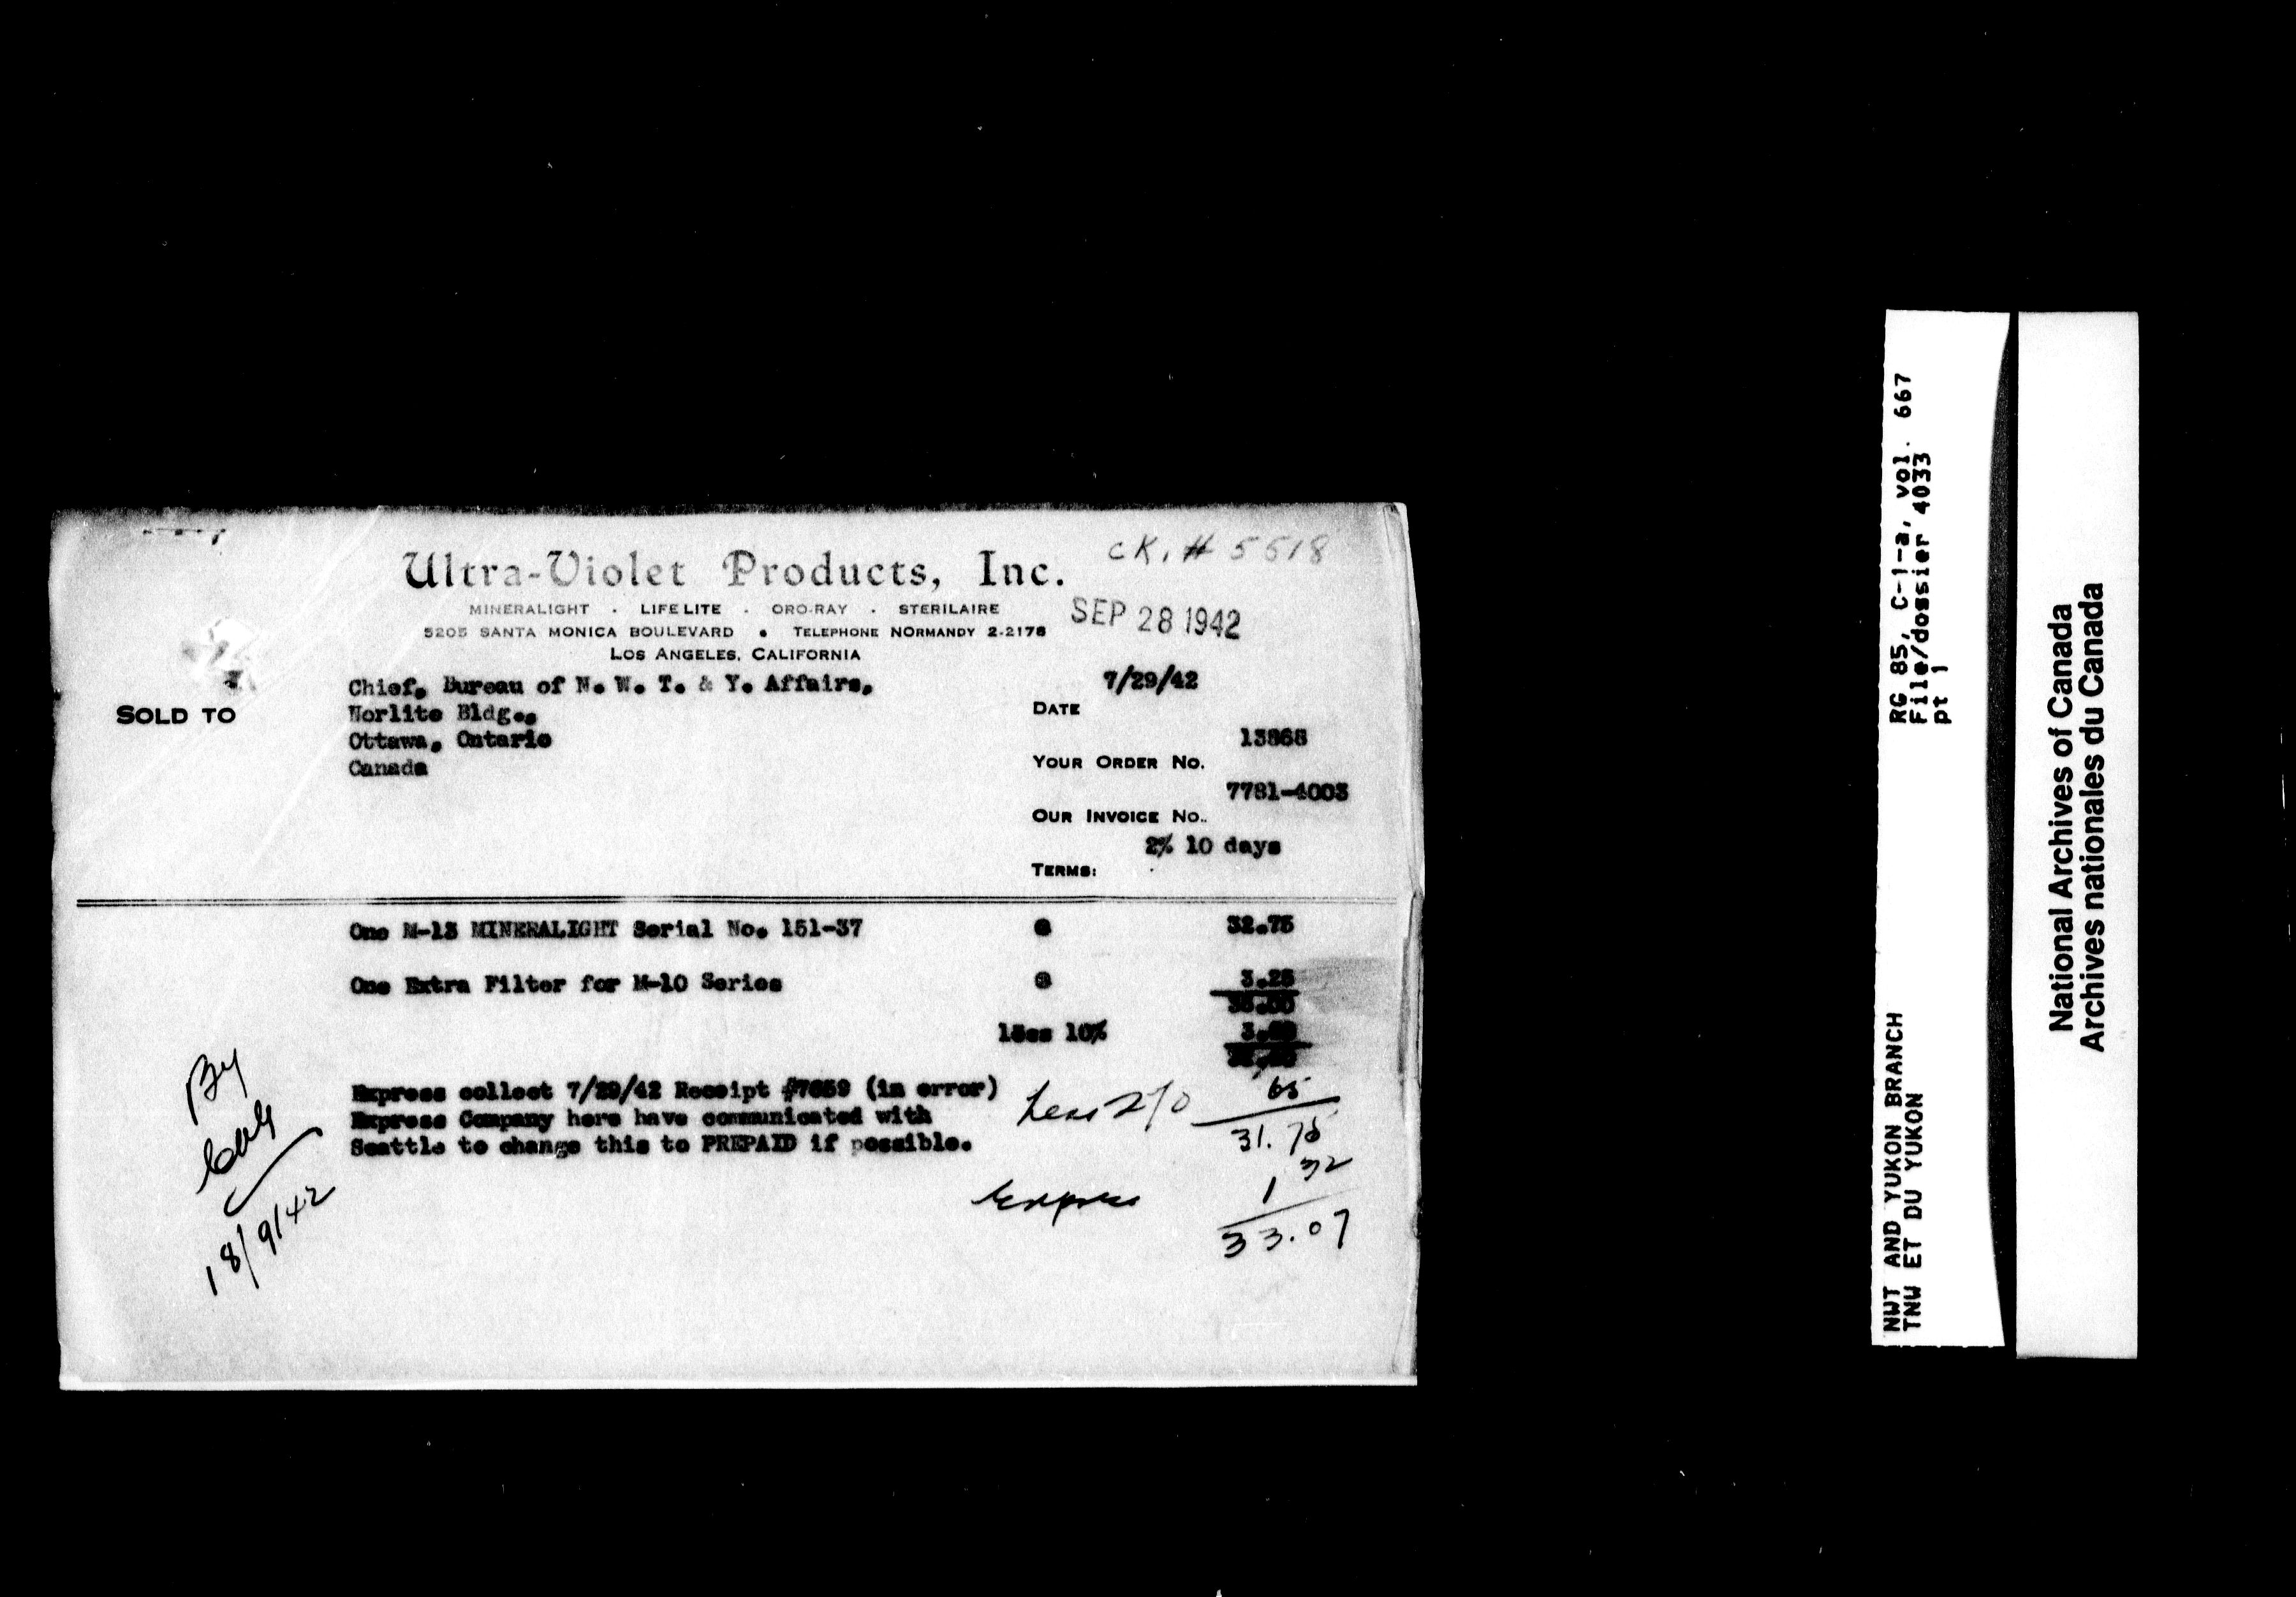 CK. # 5518
Ultra-Violet Products, Inc.
MINERALIGHT · LIFELITE · ORO-RAY · STERILAIRE
5205 SANTA MONICA BOULEVARD • TELEPHONE NORMANDY 2-2176
LOS ANGELES, CALIFORNIA
SEP 28 1942
SOLD TO
Chief, Bureau of N. W. T. & Y. Affairs,
Norlite Bldg.,
Ottawa, Ontario
Canada
7/29/42
DATE
13868
YOUR ORDER NO.
7781-4003
OUR INVOICE NO..
2% 10 days
TERMS:
One M-13 MINERALIGHT Serial No. 151-37 @ 32.75
One Extra Filter for M-10 Series @ 3.25
less 10%
Express collect 7/29/42 Receipt #7659 (in error)
Express Company here have communicated with
Seattle to change this to PREPAID if possible.
Less 2% 65
31.75
Express 1 32
33.07
By
18/9/42
RG 85, C-1-a, vol. 667
File/dossier 4033
pt 1
NWT AND YUKON BRANCH
TNW ET DU YUKON
National Archives of Canada
Archives nationales du Canada